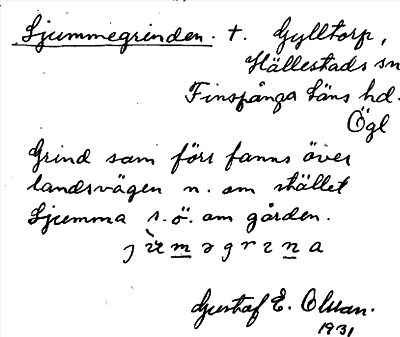 Ljummegrinden. t. Gylltorp,
Hällestads sn
Finspånga läns hd.
Ögl
Grind som förr fanns över
landsvägen n. om stället
Ljumma s.ö. om gården.
Gustaf E. Olsson.
1931